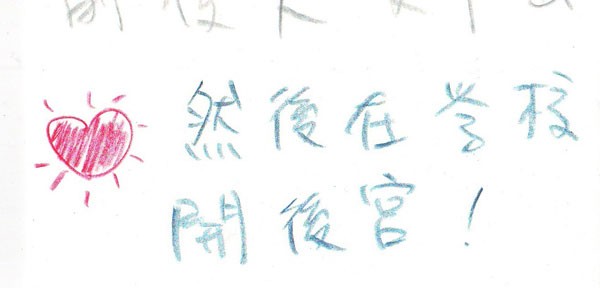 然後在学校
開後宮！